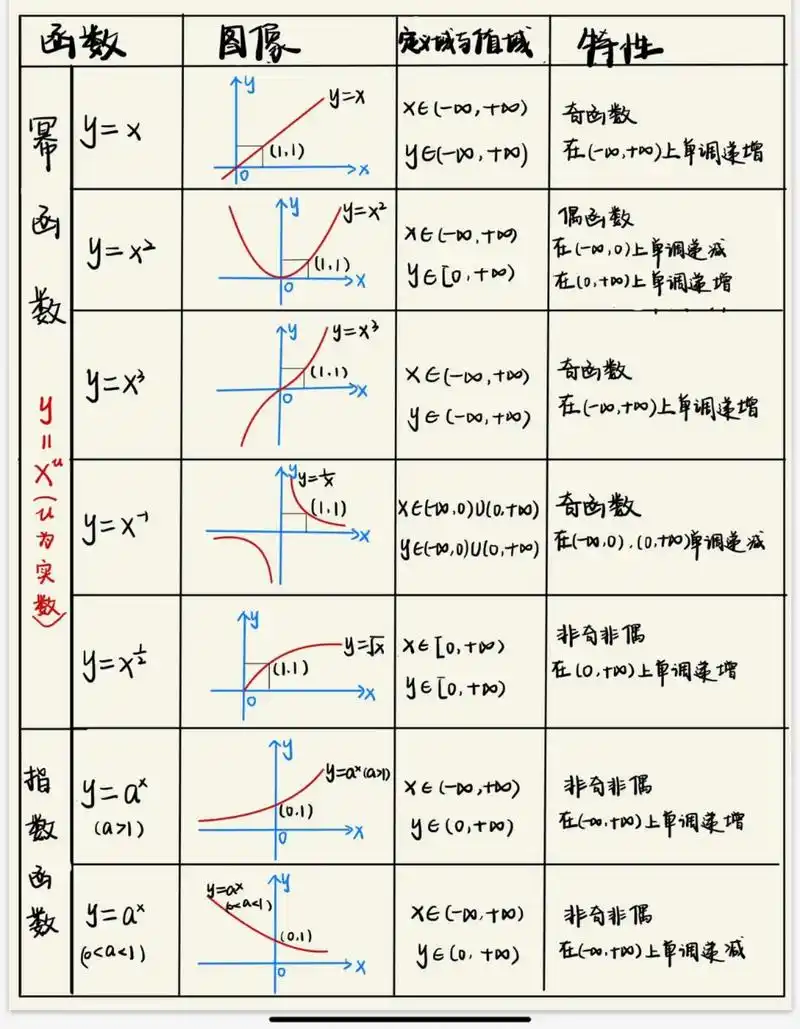 函数 图像 定义域与值域 特性
幂函数 y=xᵘ(u为实数)
y=x
y
y=x
(1,1)
0
x
x∈(-∞,+∞)
y∈(-∞,+∞)
奇函数
在(-∞,+∞)上单调递增
y=x²
y
y=x²
(1,1)
0
x
x∈(-∞,+∞)
y∈[0,+∞)
偶函数
在(-∞,0)上单调递减
在(0,+∞)上单调递增
y=x³
y
y=x³
(1,1)
0
x
x∈(-∞,+∞)
y∈(-∞,+∞)
奇函数
在(-∞,+∞)上单调递增
y=x⁻¹
y
y=1/x
(1,1)
x
x∈(-∞,0)∪(0,+∞)
y∈(-∞,0)∪(0,+∞)
奇函数
在(-∞,0),(0,+∞)单调递减
y=x^½
y
y=√x
(1,1)
0
x
x∈[0,+∞)
y∈[0,+∞)
非奇非偶
在(0,+∞)上单调递增
指数函数
y=aˣ
(a>1)
y
y=aˣ(a>1)
(0,1)
0
x
x∈(-∞,+∞)
y∈(0,+∞)
非奇非偶
在(-∞,+∞)上单调递增
y=aˣ
(0<a<1)
y
y=aˣ
(0<a<1)
(0,1)
0
x
x∈(-∞,+∞)
y∈(0,+∞)
非奇非偶
在(-∞,+∞)上单调递减